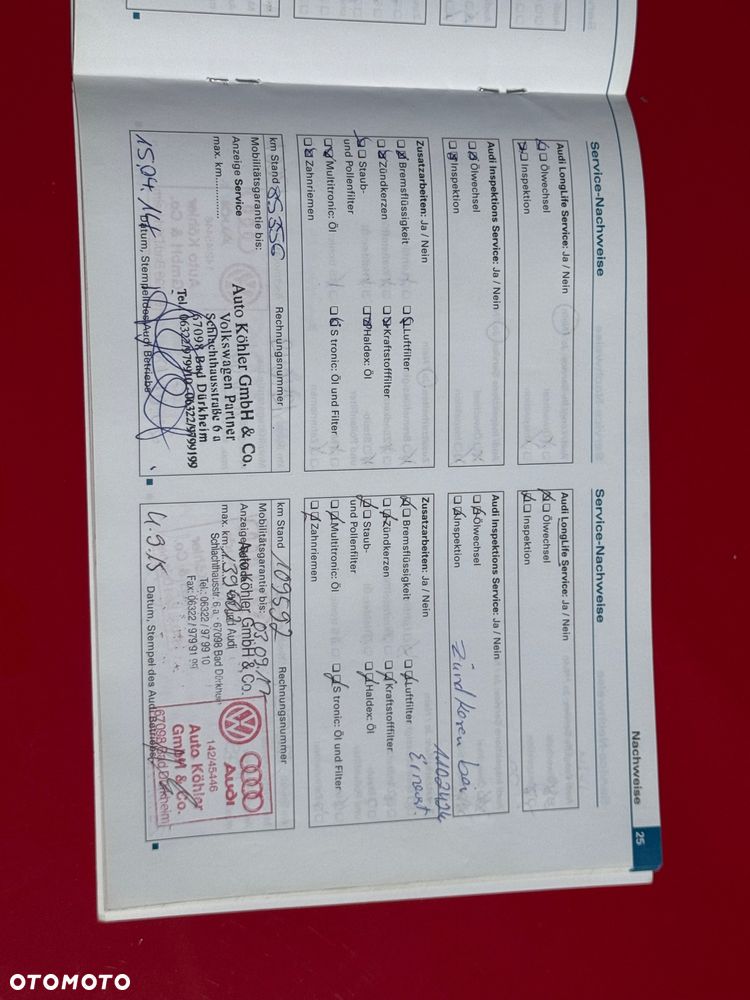 Nachweise
25
Service-Nachweise
Audi LongLife Service: Ja / Nein
Ölwechsel
Inspektion
Audi Inspektions Service: Ja / Nein
Ölwechsel
Inspektion
Zusatzarbeiten: Ja / Nein
Bremsflüssigkeit
Luftfilter
Zündkerzen
Kraftstofffilter
Staub-
und Pollenfilter
Haldex: Öl
Multitronic: Öl
S tronic: Öl und Filter
Zahnriemen
km Stand 85356
Rechnungsnummer
Mobilitätsgarantie bis:
Anzeige Service
max. km
Auto Köhler GmbH & Co.
Volkswagen Partner
Schlachthausstraße 6 a
67098 Bad Dürkheim
Tel. 06322/979910 06322/9799199
Datum, Stempel des Audi Betriebs
Service-Nachweise
Audi LongLife Service: Ja / Nein
Ölwechsel
Inspektion
Audi Inspektions Service: Ja / Nein
Ölwechsel
Inspektion
Zusatzarbeiten: Ja / Nein
Bremsflüssigkeit
Luftfilter
Zündkerzen
Kraftstofffilter
Staub-
und Pollenfilter
Haldex: Öl
Multitronic: Öl
S tronic: Öl und Filter
Zahnriemen
km Stand 109592
Rechnungsnummer
Mobilitätsgarantie bis: 03.09.17
Anzeige
max. km
Auto Köhler GmbH & Co.
VW und Audi
Schlachthausstr. 6 a · 67098 Bad Dürkheim
Tel.: 06322 / 97 99 10
Fax: 06322 / 979 91 99
Audi
142/45446
Auto Köhler
GmbH & Co.
67098 Bad Dürkheim
4.9.15
Datum, Stempel des Audi Betriebs
OTOMOTO